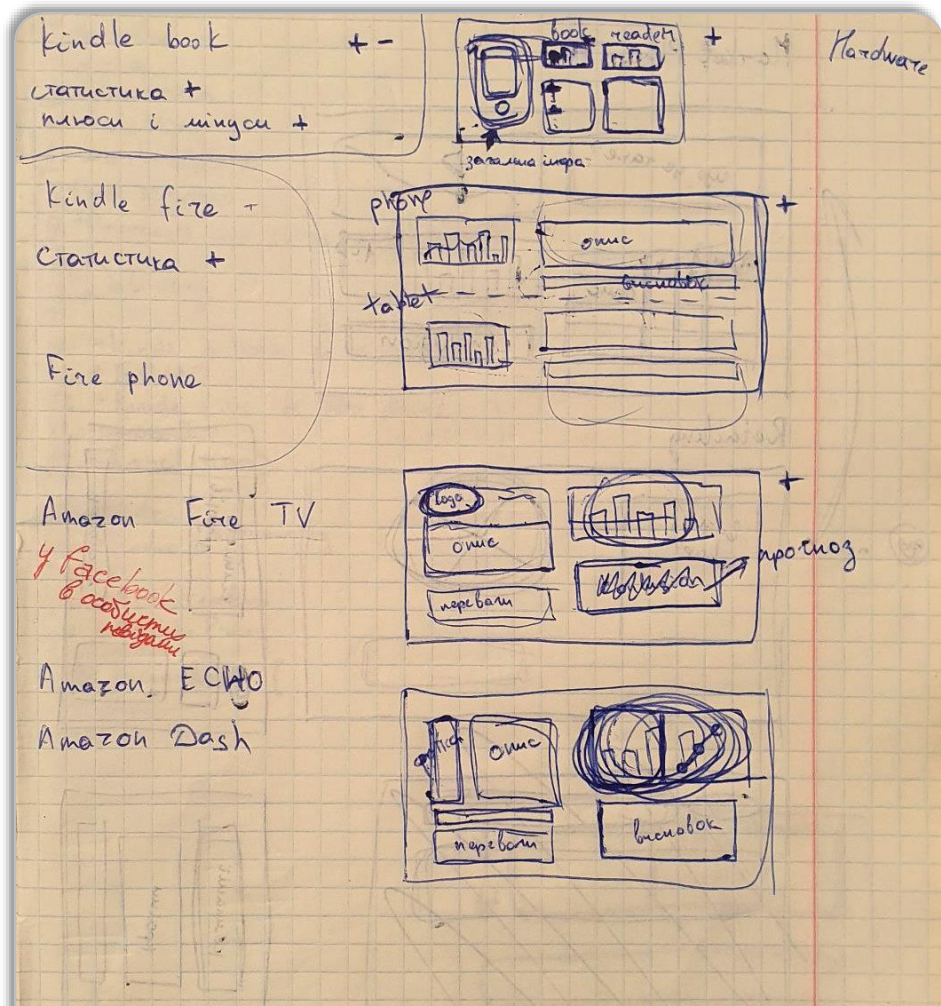 Kindle book + -
статистика +
плюси і мінуси +
book reader +
Hardware
загальна інфа
Kindle fire -
статистика +
Fire phone
phone +
опис
висновок
tablet
Amazon Fire TV
у Facebook
в особисті
Logo
опис
переваги
+
прогноз
Amazon ECHO
Amazon Dash
опис
переваги
висновок